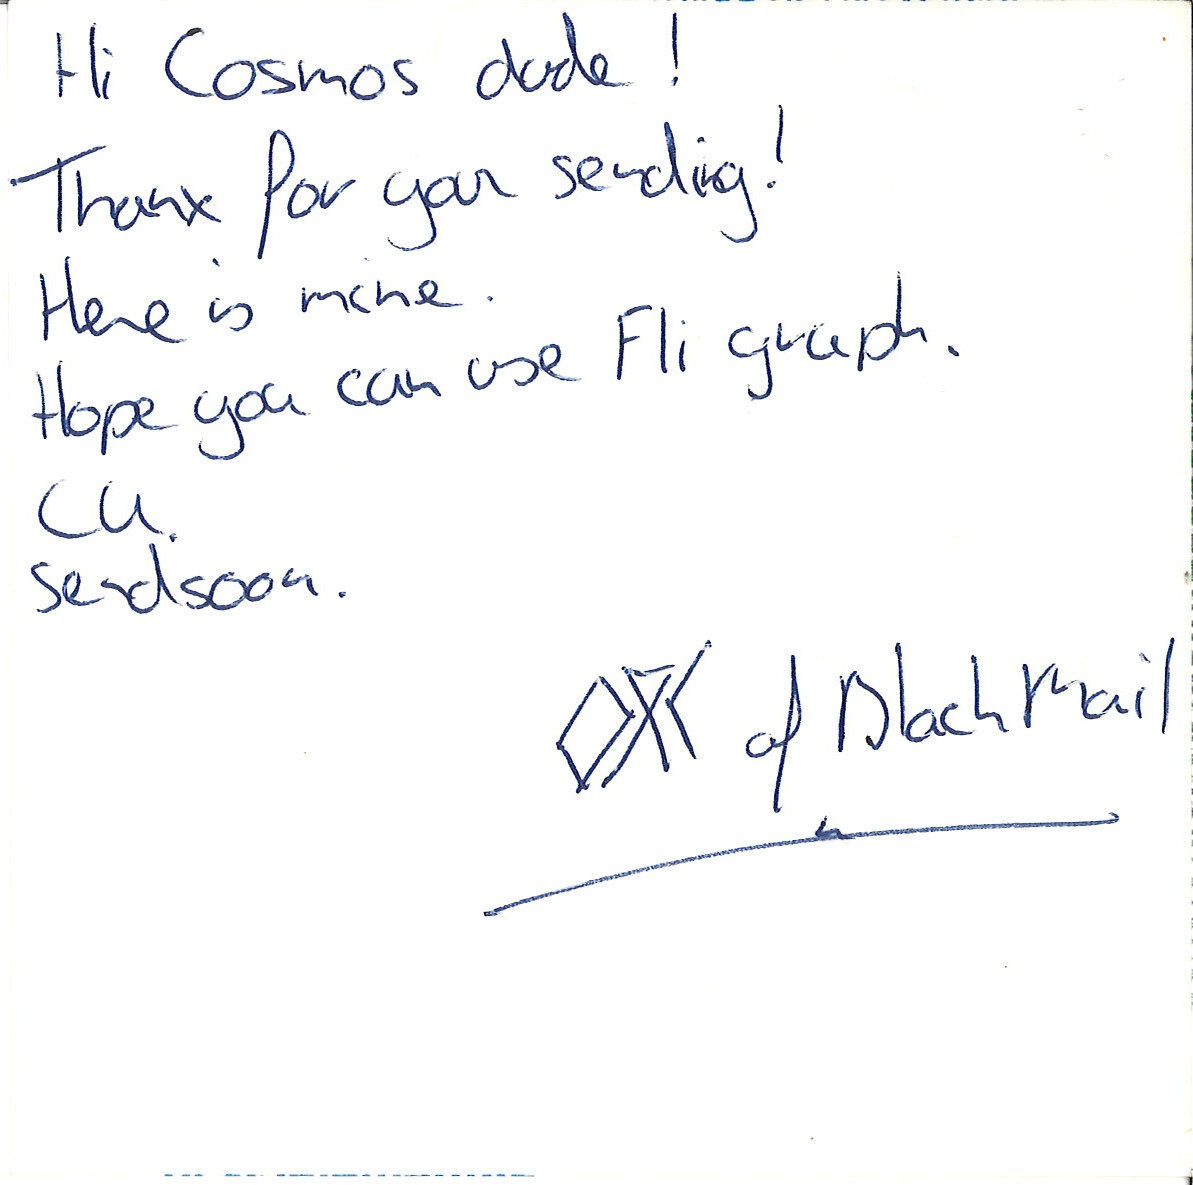 Hi Cosmos dude!
Thanx for your sending!
Here is mine.
Hope you can use Fli graph.
CU.
send soon.
of Black Mail